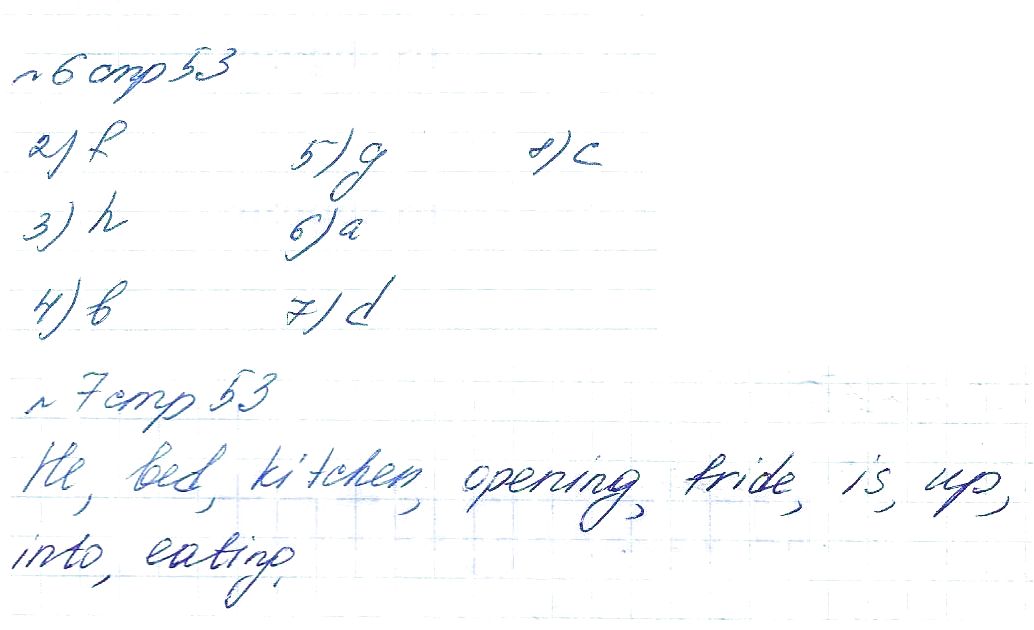 №6 стр 53
2) f 5) g 8) c
3) h 6) a
4) b 7) d
№7 стр 53
He, bed, kitchen, opening, fride, is, up,
into, eating,